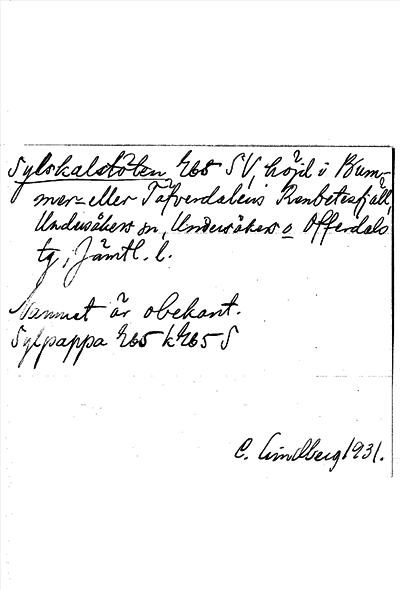 Sylskalstöten 765 SV, höjd i Bum-
mer- eller Täfverdalens Renbetesfjäll,
Undersåkers sn, Undersåkers o Offerdals
tg, Jämtl. l.
Namnet är obekant.
Sylpappa 765 k 765 S
C. Lindberg 1931.